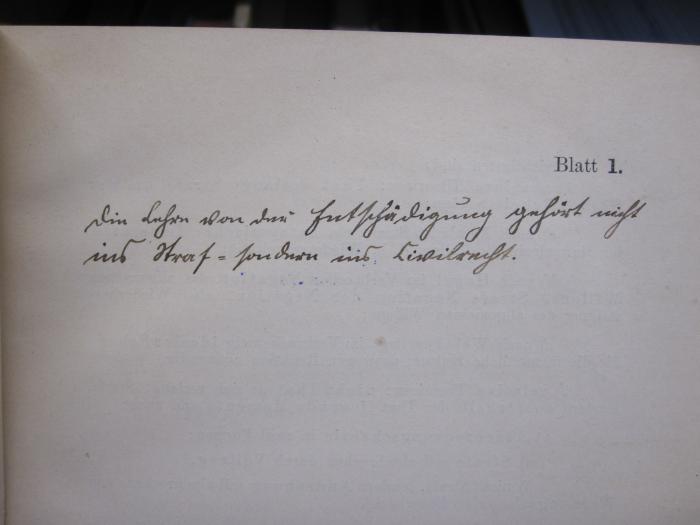 Blatt 1.
Die Lehre von der Entschädigung gehört nicht
ins Straf- sondern ins Civilrecht.